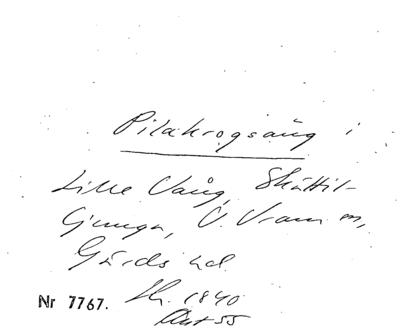 Pilakrogsäng i
Lille Vång, Skättil-
ljunga, V. Vram sn,
Gärds hd.
Nr 7767. 1840
Akt 55